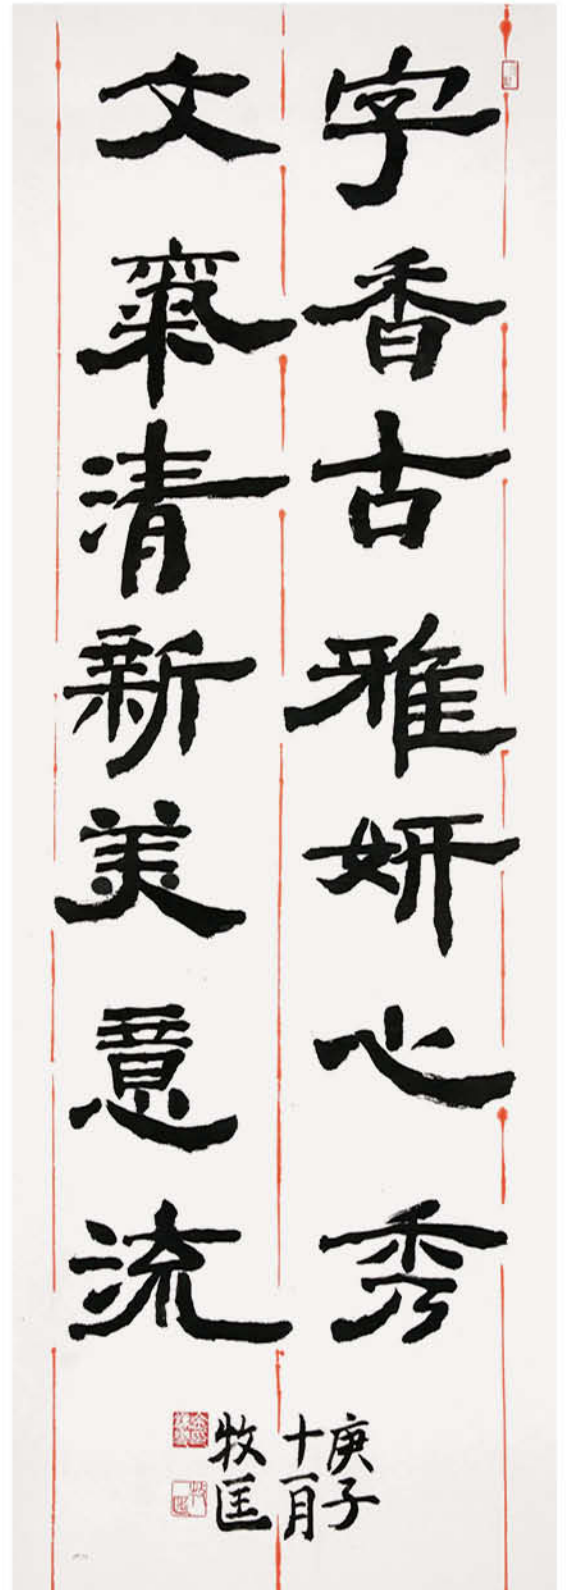 字香古雅妍心秀
文氣清新美意流
庚子
十一月
牧匡